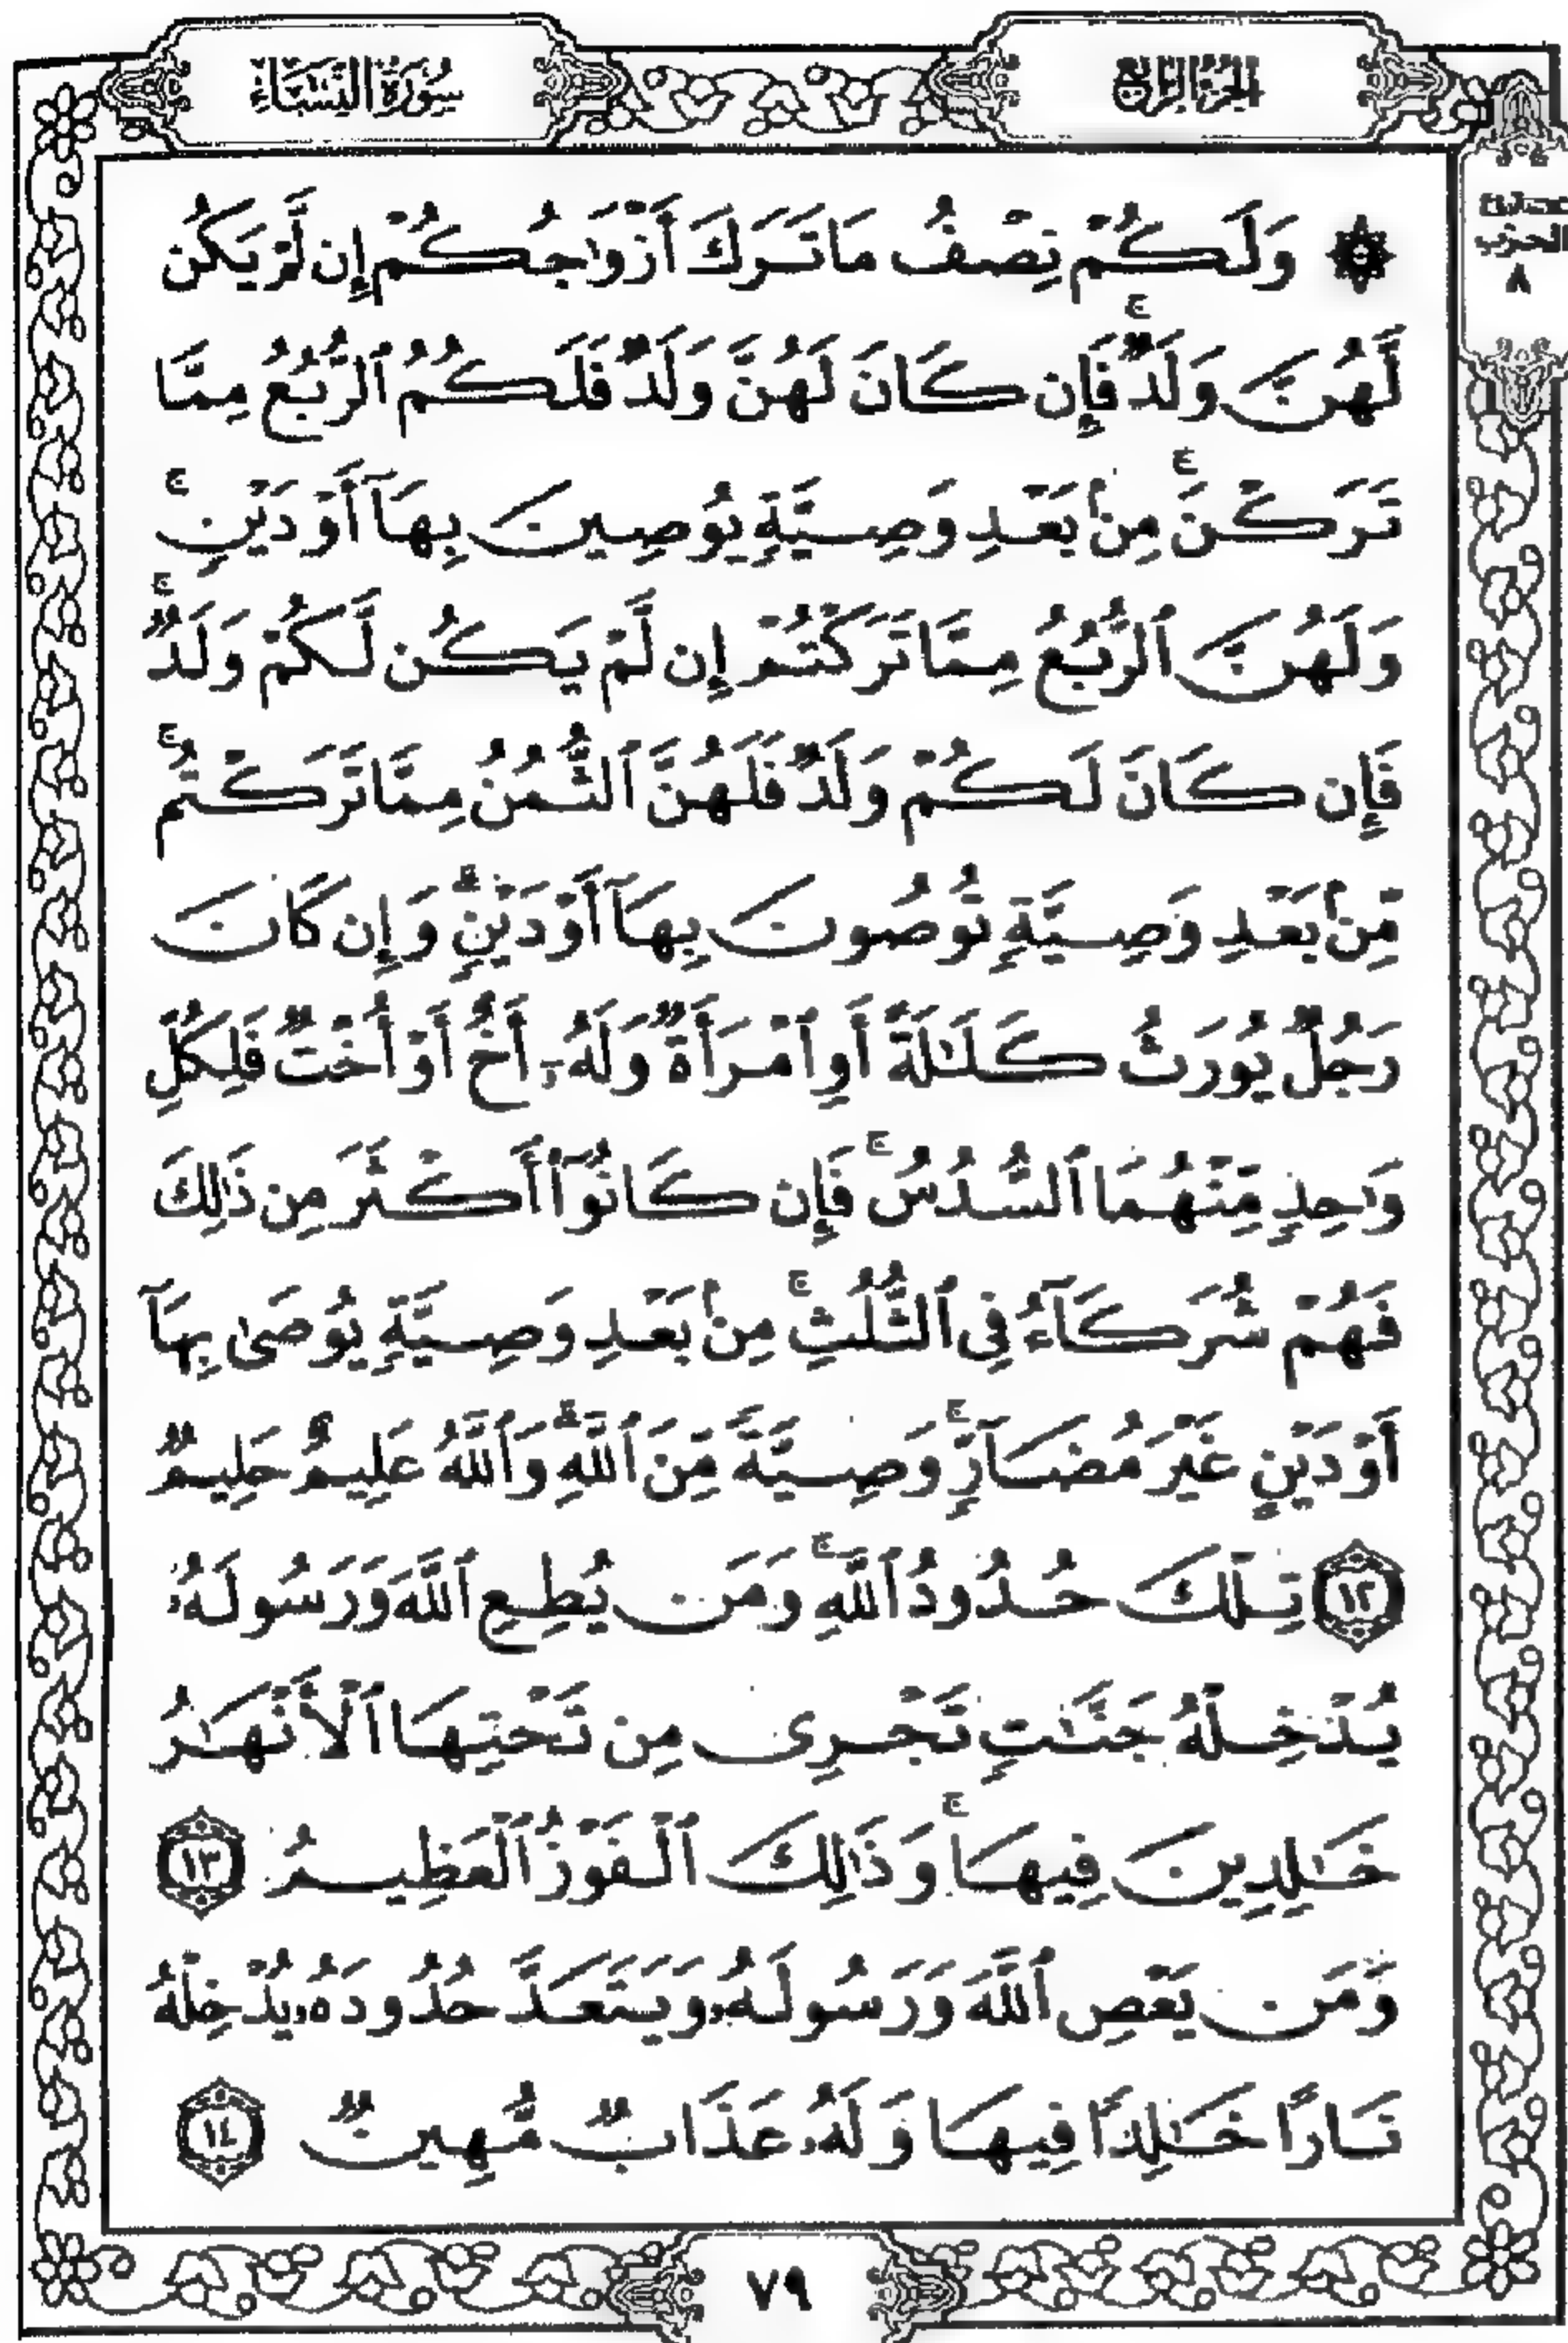 الجزء الرابع
سورة النساء
نصف
الحزب
٨
۞ وَلَكُمْ نِصْفُ مَا تَرَكَ أَزْوَٰجُكُمْ إِن لَّمْ يَكُن
لَّهُنَّ وَلَدٌ ۚ فَإِن كَانَ لَهُنَّ وَلَدٌ فَلَكُمُ ٱلرُّبُعُ مِمَّا
تَرَكْنَ ۚ مِنۢ بَعْدِ وَصِيَّةٍ يُوصِينَ بِهَآ أَوْ دَيْنٍ ۚ
وَلَهُنَّ ٱلرُّبُعُ مِمَّا تَرَكْتُمْ إِن لَّمْ يَكُن لَّكُمْ وَلَدٌ ۚ
فَإِن كَانَ لَكُمْ وَلَدٌ فَلَهُنَّ ٱلثُّمُنُ مِمَّا تَرَكْتُم ۚ
مِّنۢ بَعْدِ وَصِيَّةٍ تُوصُونَ بِهَآ أَوْ دَيْنٍ ۗ وَإِن كَانَ
رَجُلٌ يُورَثُ كَلَٰلَةً أَوِ ٱمْرَأَةٌ وَلَهُۥٓ أَخٌ أَوْ أُخْتٌ فَلِكُلِّ
وَٰحِدٍ مِّنْهُمَا ٱلسُّدُسُ ۚ فَإِن كَانُوٓا۟ أَكْثَرَ مِن ذَٰلِكَ
فَهُمْ شُرَكَآءُ فِى ٱلثُّلُثِ ۚ مِنۢ بَعْدِ وَصِيَّةٍ يُوصَىٰ بِهَآ
أَوْ دَيْنٍ غَيْرَ مُضَآرٍّ ۚ وَصِيَّةً مِّنَ ٱللَّهِ ۗ وَٱللَّهُ عَلِيمٌ حَلِيمٌ
١٢ تِلْكَ حُدُودُ ٱللَّهِ ۚ وَمَن يُطِعِ ٱللَّهَ وَرَسُولَهُۥ
يُدْخِلْهُ جَنَّٰتٍ تَجْرِى مِن تَحْتِهَا ٱلْأَنْهَٰرُ
خَٰلِدِينَ فِيهَا ۚ وَذَٰلِكَ ٱلْفَوْزُ ٱلْعَظِيمُ ١٣
وَمَن يَعْصِ ٱللَّهَ وَرَسُولَهُۥ وَيَتَعَدَّ حُدُودَهُۥ يُدْخِلْهُ
نَارًا خَٰلِدًا فِيهَا وَلَهُۥ عَذَابٌ مُّهِينٌ ١٤
٧٩